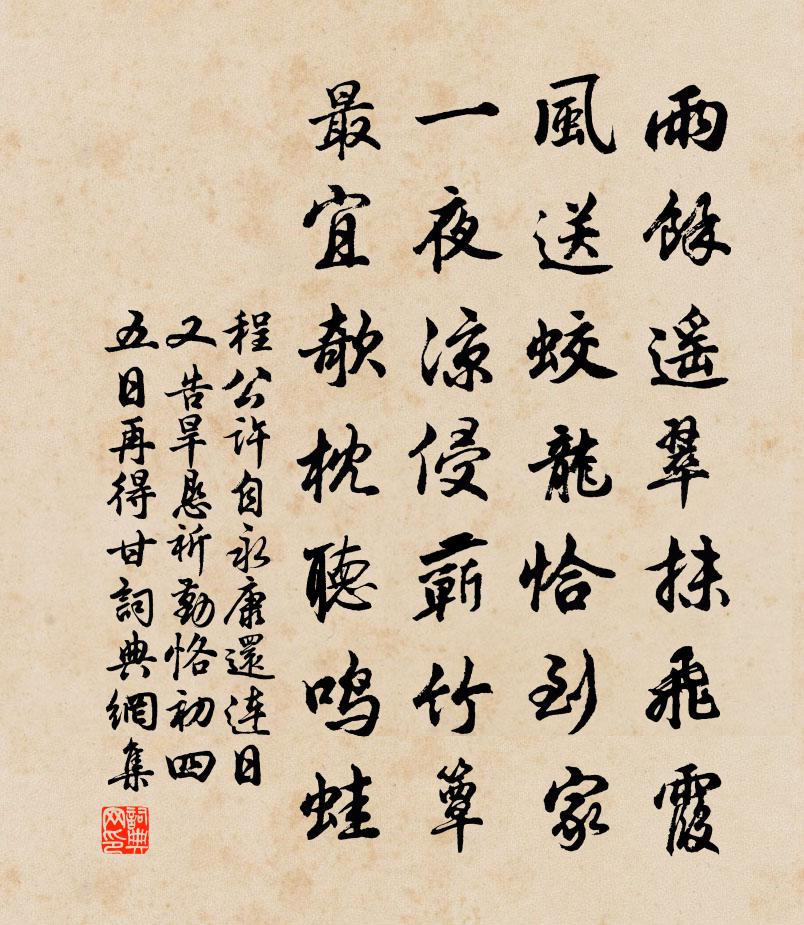 雨餘遥翠抹飛霞
風送蛟龍恰到家
一夜涼侵蘄竹簟
最宜欹枕聽鳴蛙
程公許自永康還連日
又告旱恳祈勤恪初四
五日再得甘詞典網集
詞典
网印